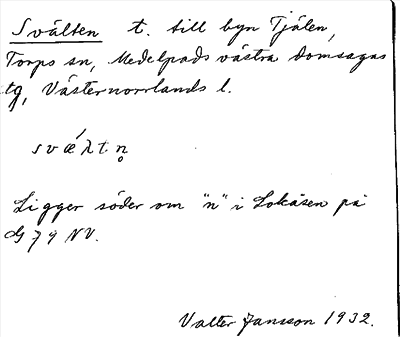 Svälten t. till byn Tjälen,
Torps sn, Medelpads västra domsagas
tg, Västernorrlands l.
svǽλt.n̥
Ligger söder om "n" i Lokåsen på
G 79 NV.
Valter Jansson 1932.